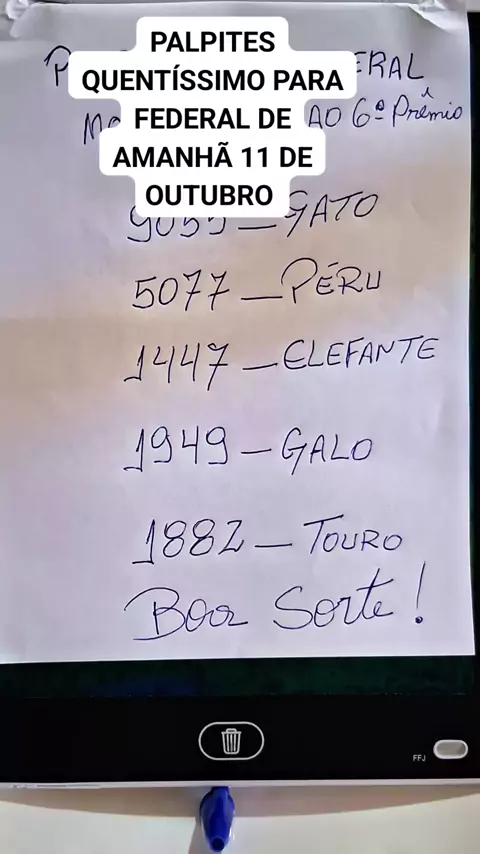 PALPITES
QUENTÍSSIMO PARA
FEDERAL DE
AMANHÃ 11 DE
OUTUBRO
AO 6º Prêmio
GATO
5077 — PÉRU
1447 — ELEFANTE
1949 — GALO
1882 — TOURO
Boa Sorte!
FFJ